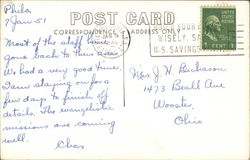 Phila.
7 Jan 51
POST CARD
CORRESPONDENCE
ADDRESS ONLY
Most of the staff have
gone back to their areas.
We had a very good time.
I am staying on for a
few days to finish off
details. The evangelistic
missions are coming
well.
Chas
YOUR
WISELY, SA
U.S. SAVINGS
JAN
1951
Mrs. J. H. Buchanan
1473 Beall Ave
Wooster,
Ohio